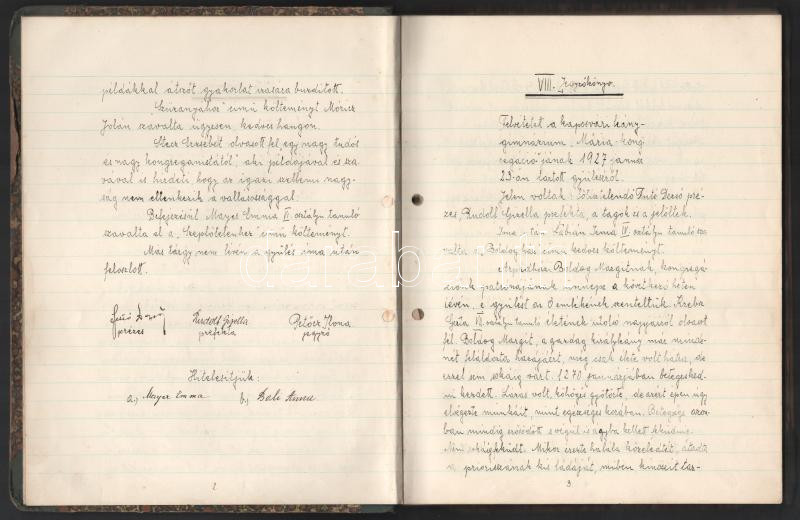 példákkal átszőtt gyakorlat írására buzdított.
"Szűzanyához" című költeményt Móricz
Jolán szavalta ügyesen, kedves hangon.
Stecz Erzsébet olvasott fel "egy nagy tudós
és nagy kongreganistáról", aki példájával és sza-
vával is hirdeti, hogy az igazi szellemi nagy-
ság nem ellenkezik a vallásossággal.
Befejezésül Mayer Emma II. osztályu tanuló
szavalta el a "Szeplőtelenhez" című költeményt.
Más tárgy nem lévén a gyűlés ima után
feloszlott.
prézes
Rudolf Gizella
prefekta
Petőcz Ilona
jegyző
Hitelesítjük:
a.) Mayer Emma b.) Bali Anna
2
VIII. Jegyzőkönyv.
Felvétetett a kaposvári leány-
gimnázium "Mária-kong-
regáció"jának 1927 január
23-án tartott gyűléséről.
Jelen voltak: Főtisztelendő Futó Dezső pré-
zes, Rudolf Gizella prefekta, a tagok és a jelöltek.
Ima után Lábián Irma IV. osztályu tanuló sza-
valta a "Boldog ház" című kedves költeményt.
Árpádházi Boldog Margitnak, kongregá-
ciónk patrónájának ünnepe a következő héten
lévén, e gyűlést az Ő emlékének szenteltük. Kreba
Gréta VI. osztályu tanuló életének utolsó napjairól olvasott
fel. Boldog Margit, a gazdag királylány már minde-
nét feláldozta hazájáért, még csak élete volt hátra, de
ezzel sem sokáig várt. 1270 januárjában betegesked-
ni kezdett. Lázas volt, köhögés gyötörte, de azért épen úgy
elvégezte munkáit, mint egészséges korában. Betegsége azon-
ban mindig erősödött s végül is ágyba kellett feküdnie.
Nem sokáig feküdt. Mikor érezte halála közeledtét, átadta
a priorisszának kis ládáját, miben kincseit tar-
3